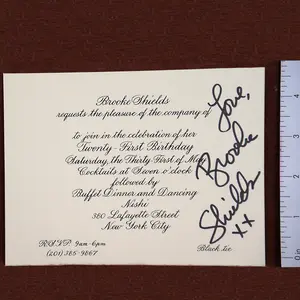 Brooke Shields
requests the pleasure of the company of
to join in the celebration of her
Twenty-First Birthday
Saturday, the Thirty First of May
Cocktails at Seven o'clock
followed by
Buffet Dinner and Dancing
Nishi
380 Lafayette Street
New York City
R.S.V.P. 9am-6pm
(201) 385-9867
Black tie
Love,
Brooke
Shields
XX
0.5
1
2
3
4